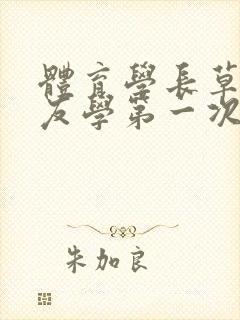 體育學長草
友學第一次
朱加良